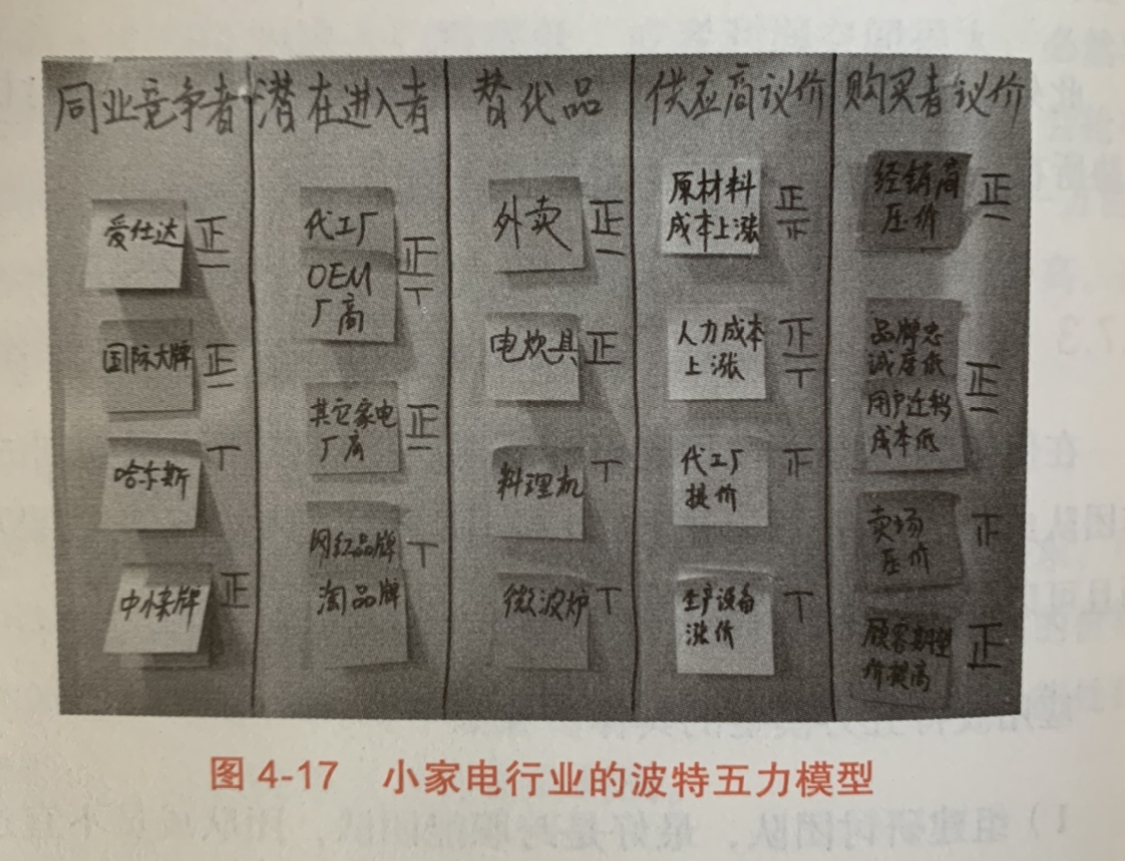 同业竞争者
潜在进入者
替代品
供应商议价
购买者议价
爱仕达
正
国际大牌
正
哈尔斯
中怡牌
正
代工厂
OEM
厂商
正
其它家电
厂商
正
网红品牌
淘品牌
外卖
正
电炊具
正
料理机
微波炉
原材料
成本上涨
正
正
人力成本
上涨
正
代工厂
提价
正
生产设备
涨价
经销商
压价
正
品牌忠
诚度低
用户迁移
成本低
正
卖场
压价
正
顾客期望
价提高
正
图 4-17 小家电行业的波特五力模型
1）组建研讨团队，最好是跨职能团队，团队成员